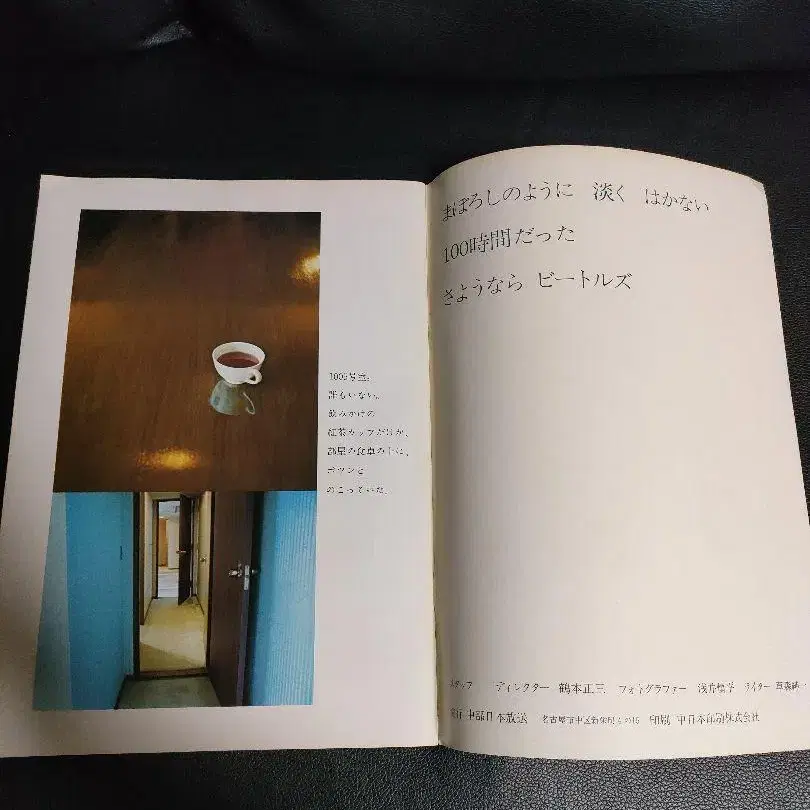 1005号室。
誰もいない。
飲みかけの
紅茶カップだけが、
部屋の食卓の上に、
ポツンと
のこっていた。
まぼろしのように 淡く はかない
100時間だった
さようなら ビートルズ
スタッフ ディレクター 鶴本正三 フォトグラファー 浅井慎平 ライター
発行 中部日本放送 名古屋市中区新栄町 印刷 中日本印刷株式会社